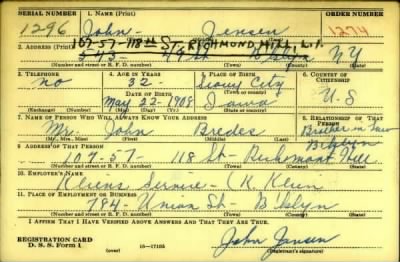 SERIAL NUMBER 1. NAME (Print) ORDER NUMBER
1296 John - Jensen 1274
107-57-118th ST. RICHMOND HILL, L.I.
2. ADDRESS (Print)
545 - 49 St B'klyn NY
(Number and street or R. F. D. number) (Town) (County) (State)
3. TELEPHONE 4. AGE IN YEARS 5. PLACE OF BIRTH 6. COUNTRY OF CITIZENSHIP
no 32 Sioux City
DATE OF BIRTH
May 22 - 1908 Iowa U-S
(Exchange) (Number) (Mo.) (Day) (Yr.) (State or country)
7. NAME OF PERSON WHO WILL ALWAYS KNOW YOUR ADDRESS 8. RELATIONSHIP OF THAT PERSON
Mr. John Bredes Brother in law
(Mr., Mrs., Miss) (First) (Middle) (Last)
9. ADDRESS OF THAT PERSON B'klyn
107-57 - 118 St - Richmont Hill
(Number and street or R. F. D. number) (Town) (County) (State)
10. EMPLOYER'S NAME
Kleins Service - (K Klein
11. PLACE OF EMPLOYMENT OR BUSINESS
784 - Union St - B'klyn
(Number and street or R. F. D. number) (Town) (County) (State)
I AFFIRM THAT I HAVE VERIFIED ABOVE ANSWERS AND THAT THEY ARE TRUE.
REGISTRATION CARD
D. S. S. Form 1 (over) 16-17105 John Jensen
(Registrant's signature)